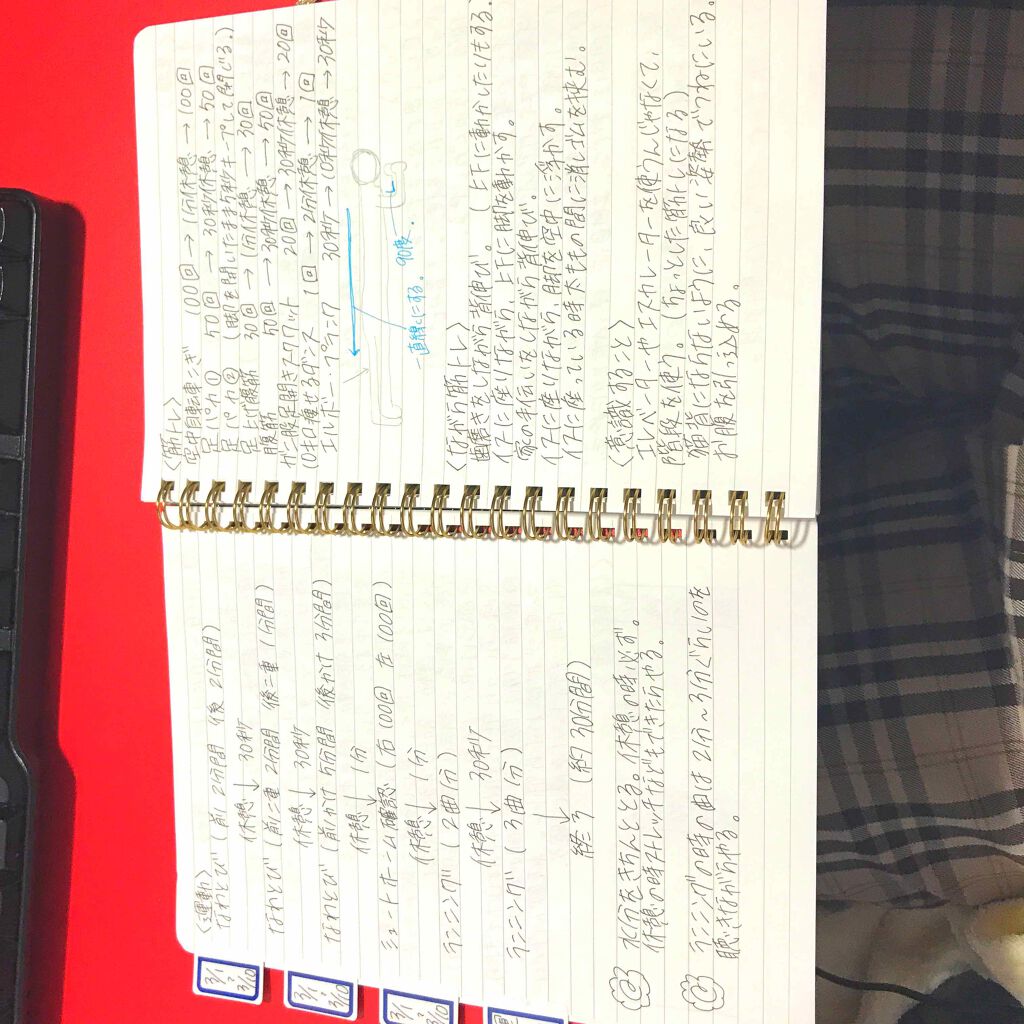 〈運動〉
なわとび (前 2分間 後 2分間)
休憩↓ 30秒
なわとび (前二重 2分間 後二重 1分間)
休憩↓ 30秒
なわとび (前かけ 5分間 後かけ 3分間)
休憩↓ 1分
シュートホーム確認 (右 100回 左 100回)
休憩↓ 1分
ランニング (2曲分)
休憩↓ 30秒
ランニング (3曲分)
↓
終了 (約30分間)
水分をきちんととる。休憩の時必ず。
休憩の時ストレッチなどもできたらやる。
ランニングの時の曲は2分〜3分ぐらいのを
聴きながらやる。
3/1
3/10
3/1
3/10
3/1
3/10
〈筋トレ〉
空中自転車こぎ 100回 → 1分休憩 → 100回
足パカ① 50回 → 30秒休憩 → 50回
足パカ② (脚を開いたまま5秒キープして閉じる。)
足上げ腹筋 30回 → 1分休憩 → 30回
腹筋 50回 → 30秒休憩 → 50回
ガニ股足開きスクワット 20回 → 30秒休憩 → 20回
10キロ痩せるダンス 1回 → 2分休憩 → 1回
エルボープランク 30秒 → 10秒休憩 → 30秒
90度.
一直線にする。
〈ながら筋トレ〉
歯磨きをしながら背伸び。 (上下に動かしたりもする。
イスに座りながら、上下に脚を動かす。
家の手伝いをしながら背伸び。
イスに座りながら、脚を空中に浮かす。
イスに座っている時太ももの間に消しゴムを挟む。
〈意識すること〉
エレベーターやエスカレーターを使うんじゃなくて、
階段を使う。(ちょっとした筋トレになる)
猫背にならないように、良い姿勢でつねにいる。
お腹を引っ込める。